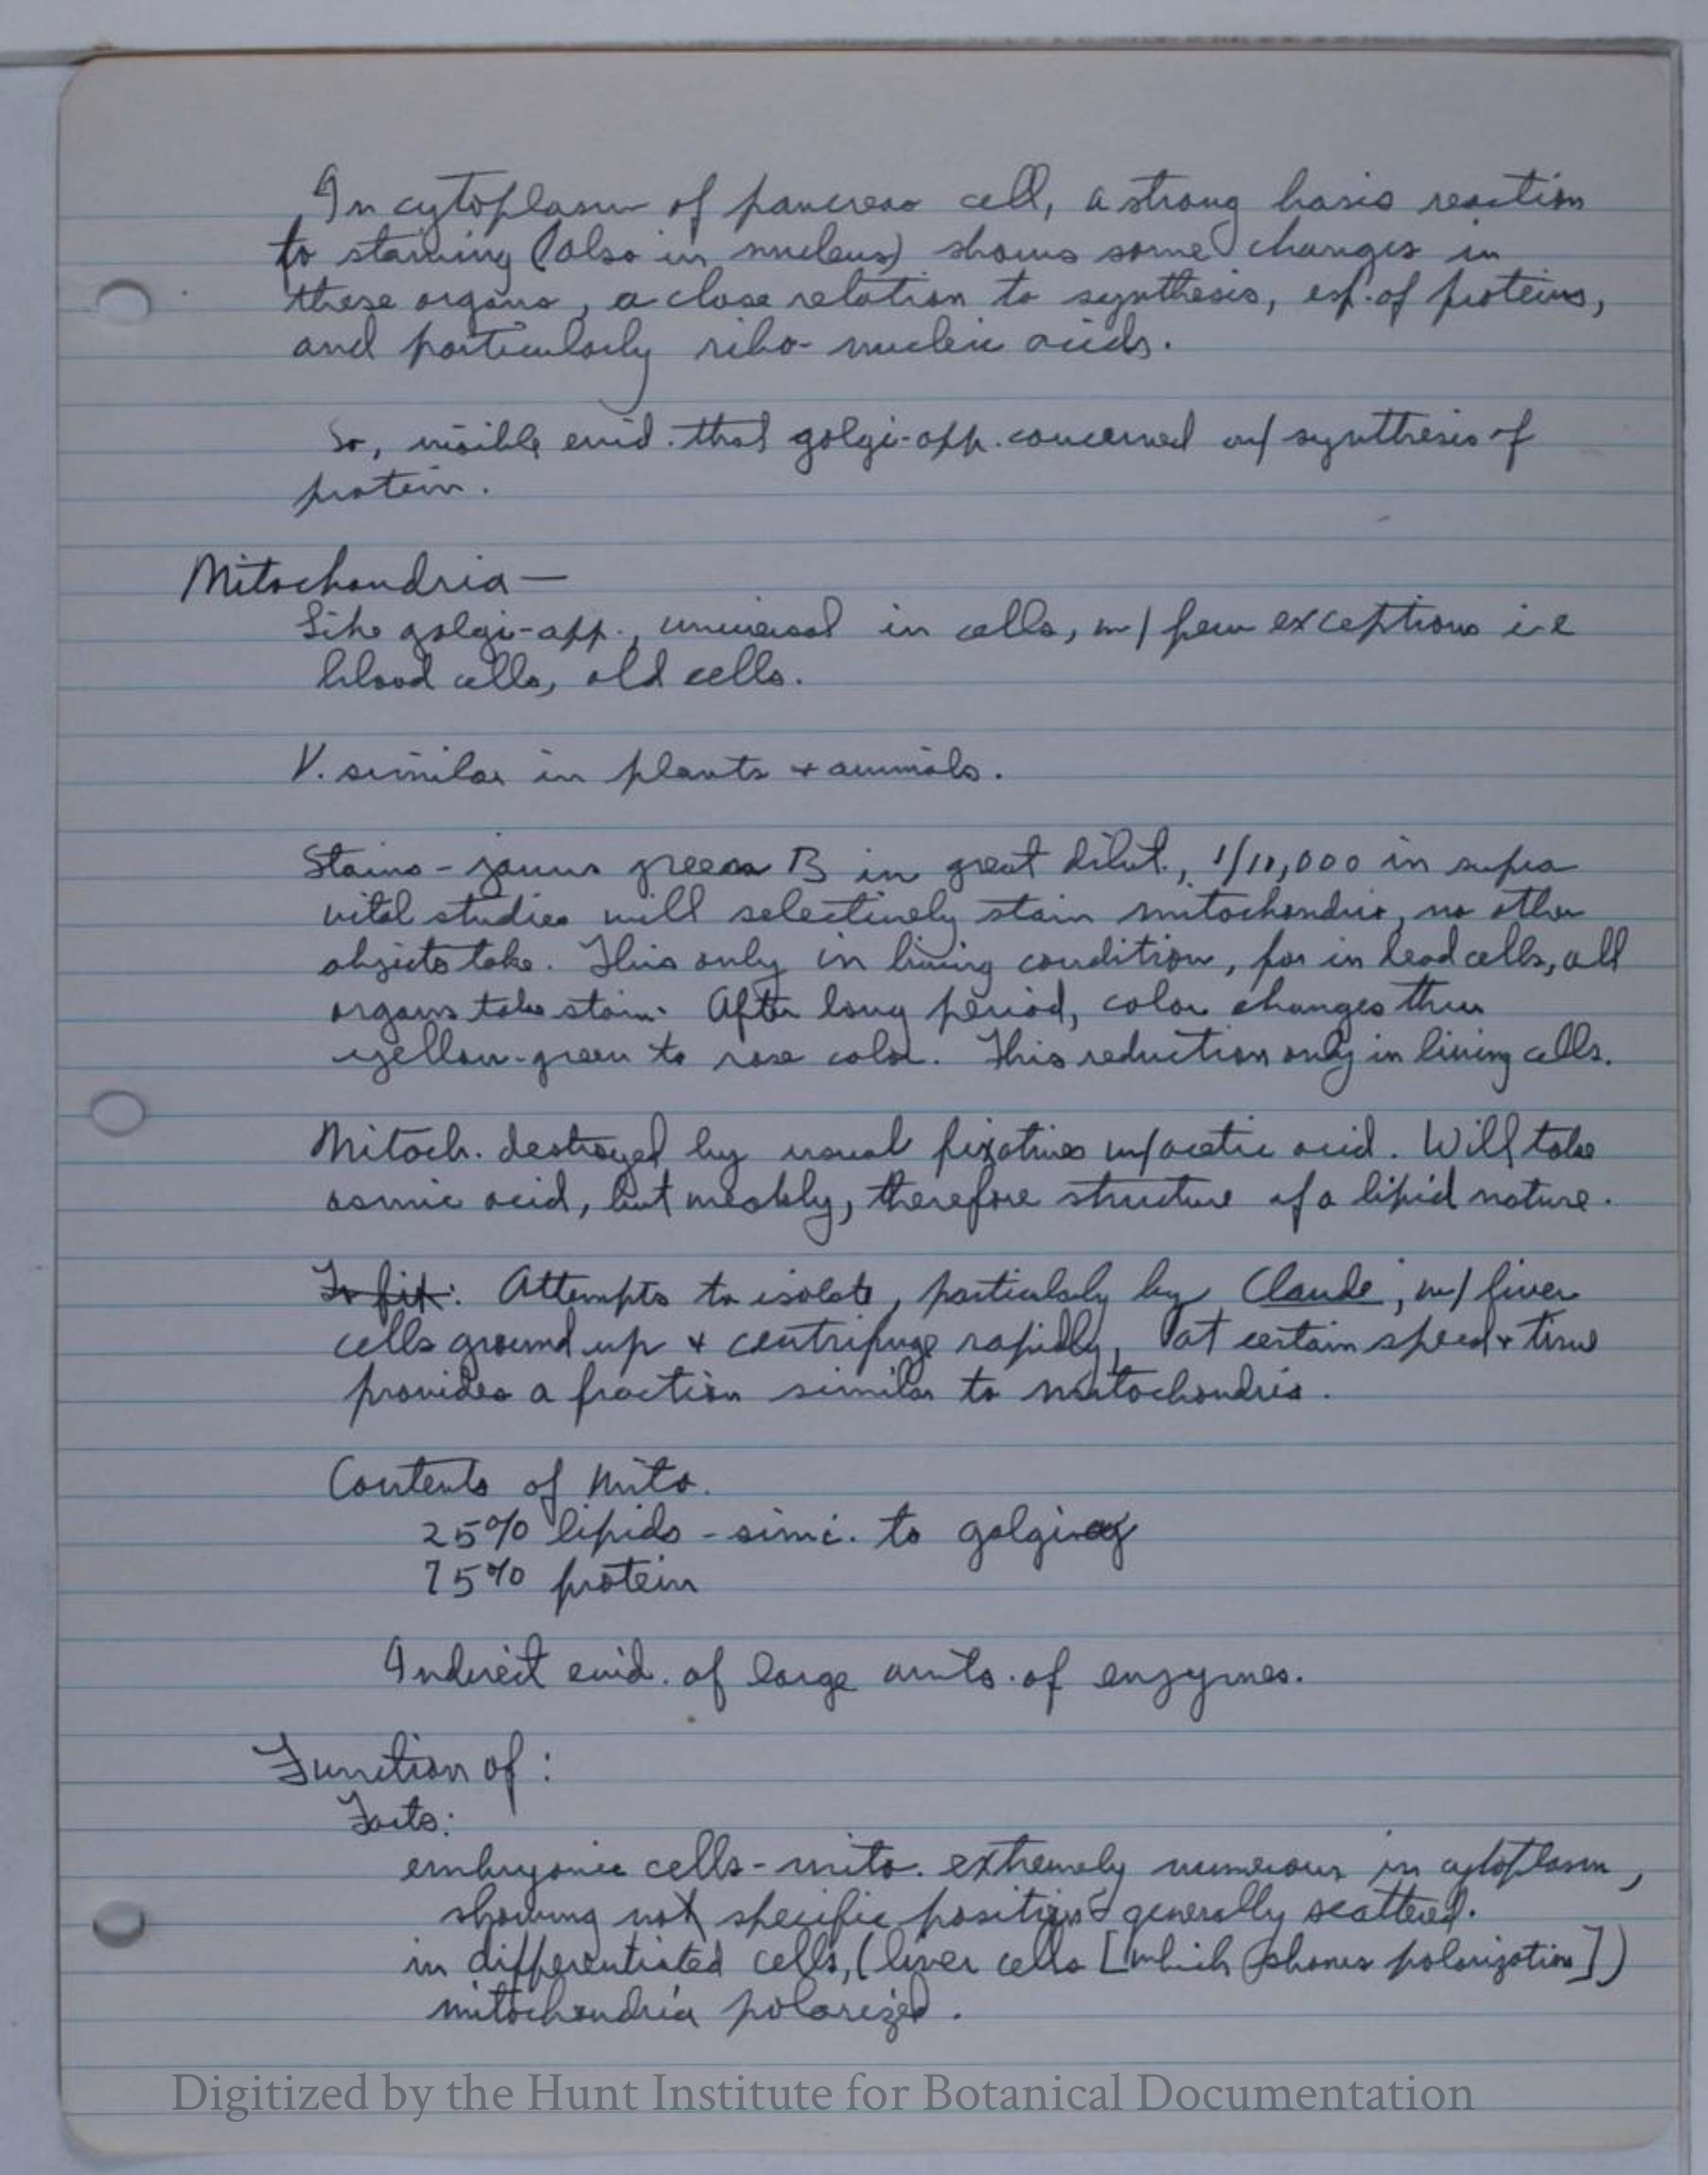 In cytoplasm of pancreas cell, a strong basic reaction
to staining (also in nucleus) shows some changes in
these organs, a close relation to synthesis, esp. of proteins,
and particularly ribo-nucleic acids.
So, visible evid. that golgi-app. concerned w/ synthesis of
protein.
Mitochondria—
Like golgi-app., universal in cells, w/ few exceptions i.e
blood cells, old cells.
V. similar in plants + animals.
Stains - janus green B in great dilut., 1/10,000 in supra
vital studies will selectively stain mitochondria, no other
objects take. This only in living condition, for in dead cells, all
organs take stain. After long period, color changes thru
yellow-green to rose color. This reduction only in living cells.
Mitoch. destroyed by usual fixatives w/acetic acid. Will take
osmic acid, but weakly, therefore structure of a lipid nature.
To fix: Attempts to isolate, particularly by Claude, w/ liver
cells ground up + centrifuge rapidly, at certain speed + time
provides a fraction similar to mitochondria.
Contents of mito.
25% lipids - simi. to golgi
75% protein
Indirect evid. of large amts. of enzymes.
Function of:
Facts:
embryonic cells - mito. extremely numerous in cytoplasm,
showing not specific position & generally scattered.
in differentiated cells, (liver cells [which shows polarization])
mitochondria polarized.
Digitized by the Hunt Institute for Botanical Documentation